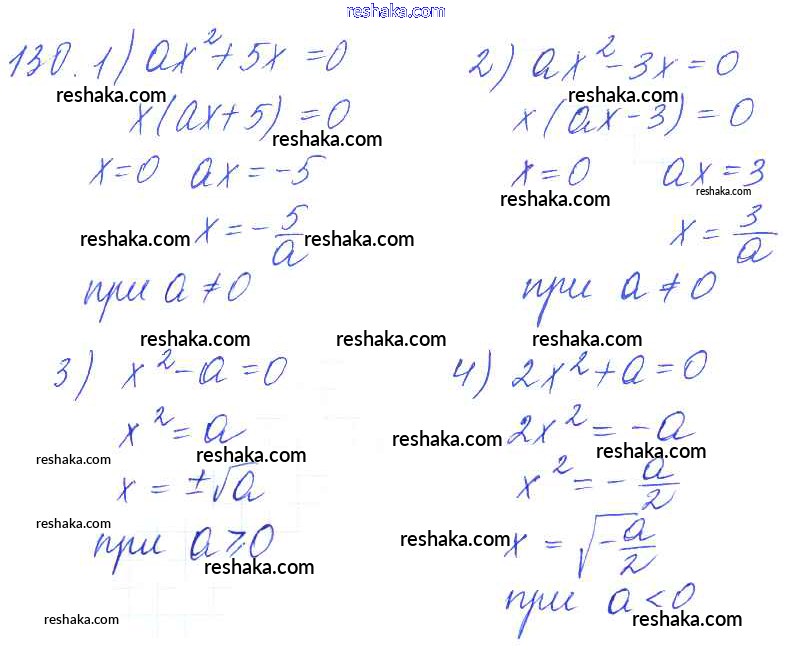 reshaka.com
130. 1) ax² + 5x = 0
reshaka.com
x(ax + 5) = 0
reshaka.com
x = 0 ax = -5
reshaka.com x = -5/a reshaka.com
при a ≠ 0
2) ax² - 3x = 0
reshaka.com
x(ax - 3) = 0
x = 0 ax = 3
reshaka.com reshaka.com
x = 3/a
при a ≠ 0
reshaka.com reshaka.com reshaka.com
3) x² - a = 0
x² = a
reshaka.com reshaka.com
x = ±√a
reshaka.com
при a ⩾ 0
reshaka.com
reshaka.com
4) 2x² + a = 0
reshaka.com 2x² = -a
reshaka.com
x² = -a/2
reshaka.com x = √(-a/2)
при a < 0
reshaka.com